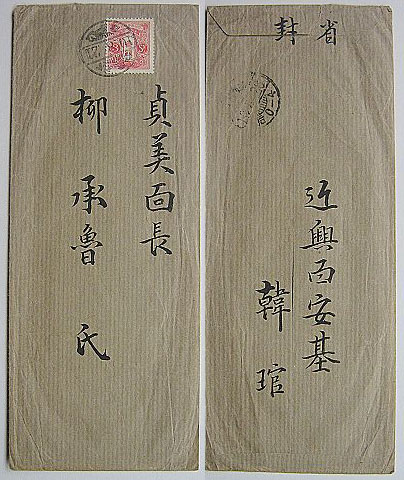 貞美面長
柳承魯氏
省封
近興面安基
韓琯